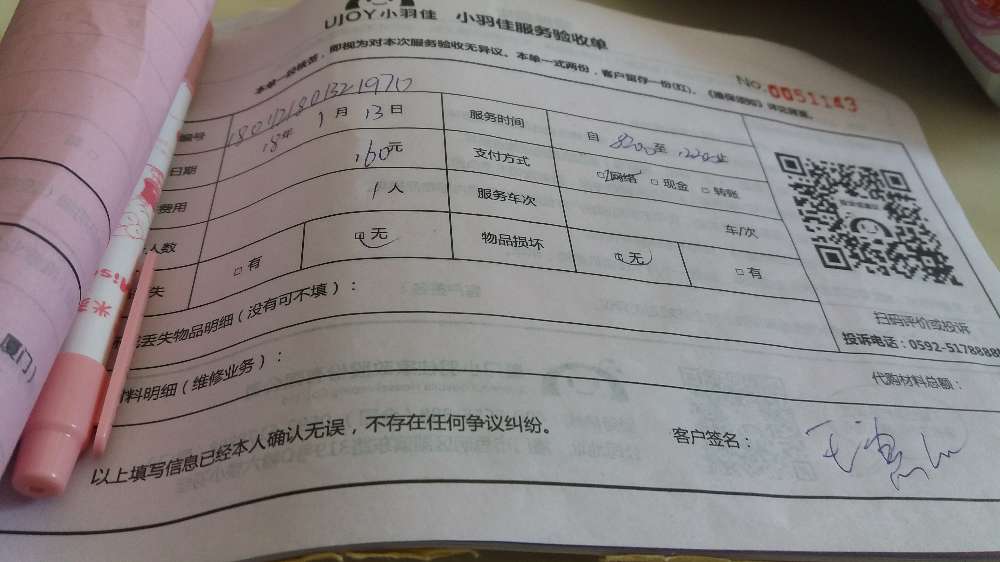 UJOY小羽佳 小羽佳服务验收单
本单一经核签，即视为对本次服务验收无异议。本单一式两份，客户留存一份(红)。
No.0051143
编号
日期 18年 1月 13日 服务时间 自 至 止
费用 160元 支付方式 网络 □ 现金 □ 转账
人数 1人 服务车次 车/次
失 □ 有 □ 无 物品损坏 □ 无 □ 有
丢失物品明细（没有可不填）：
料明细（维修业务）：
以上填写信息已经本人确认无误，不存在任何争议纠纷。
扫码评价或投诉
投诉电话：0592-5178888
代购材料总额：
客户签名：